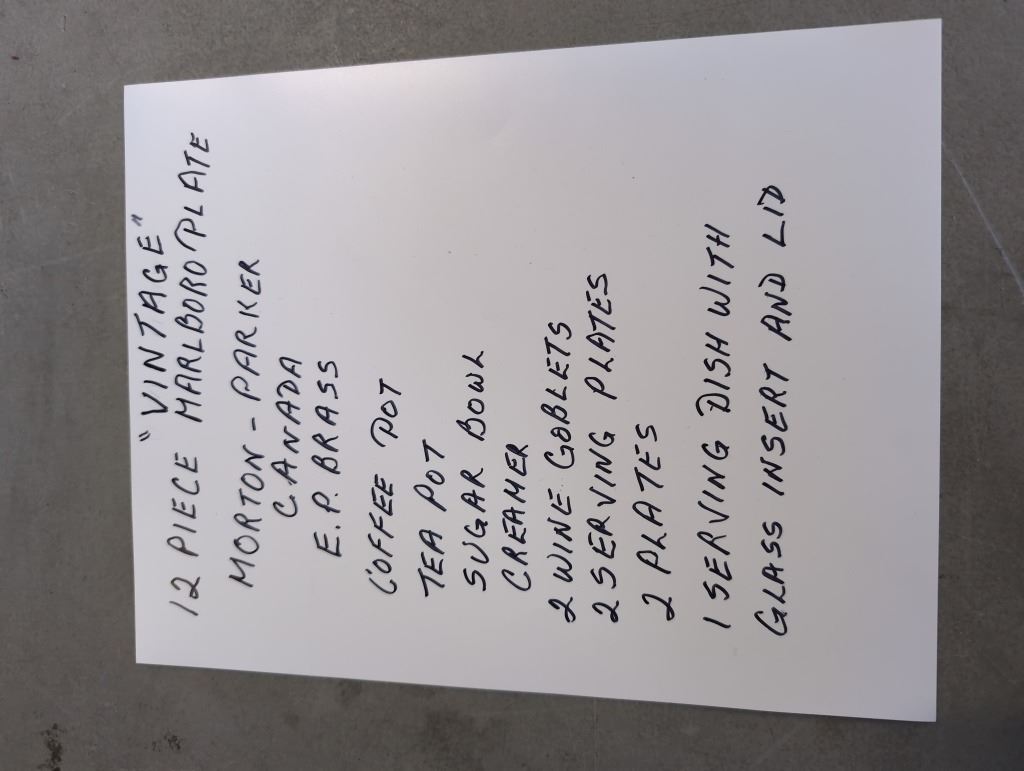 "VINTAGE"
12 PIECE MARLBORO PLATE
MORTON - PARKER
CANADA
E.P. BRASS
COFFEE POT
TEA POT
SUGAR BOWL
CREAMER
2 WINE GOBLETS
2 SERVING PLATES
2 PLATES
1 SERVING DISH WITH
GLASS INSERT AND LID